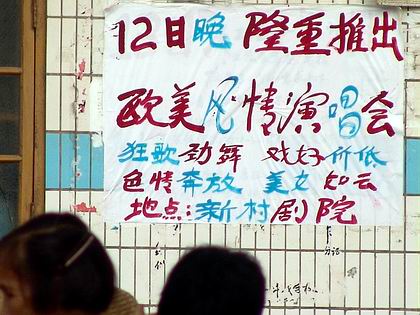 12日晚 隆重推出
欧美风情演唱会
狂歌劲舞 戏好价低
色情奔放 美女如云
地点:新村剧院